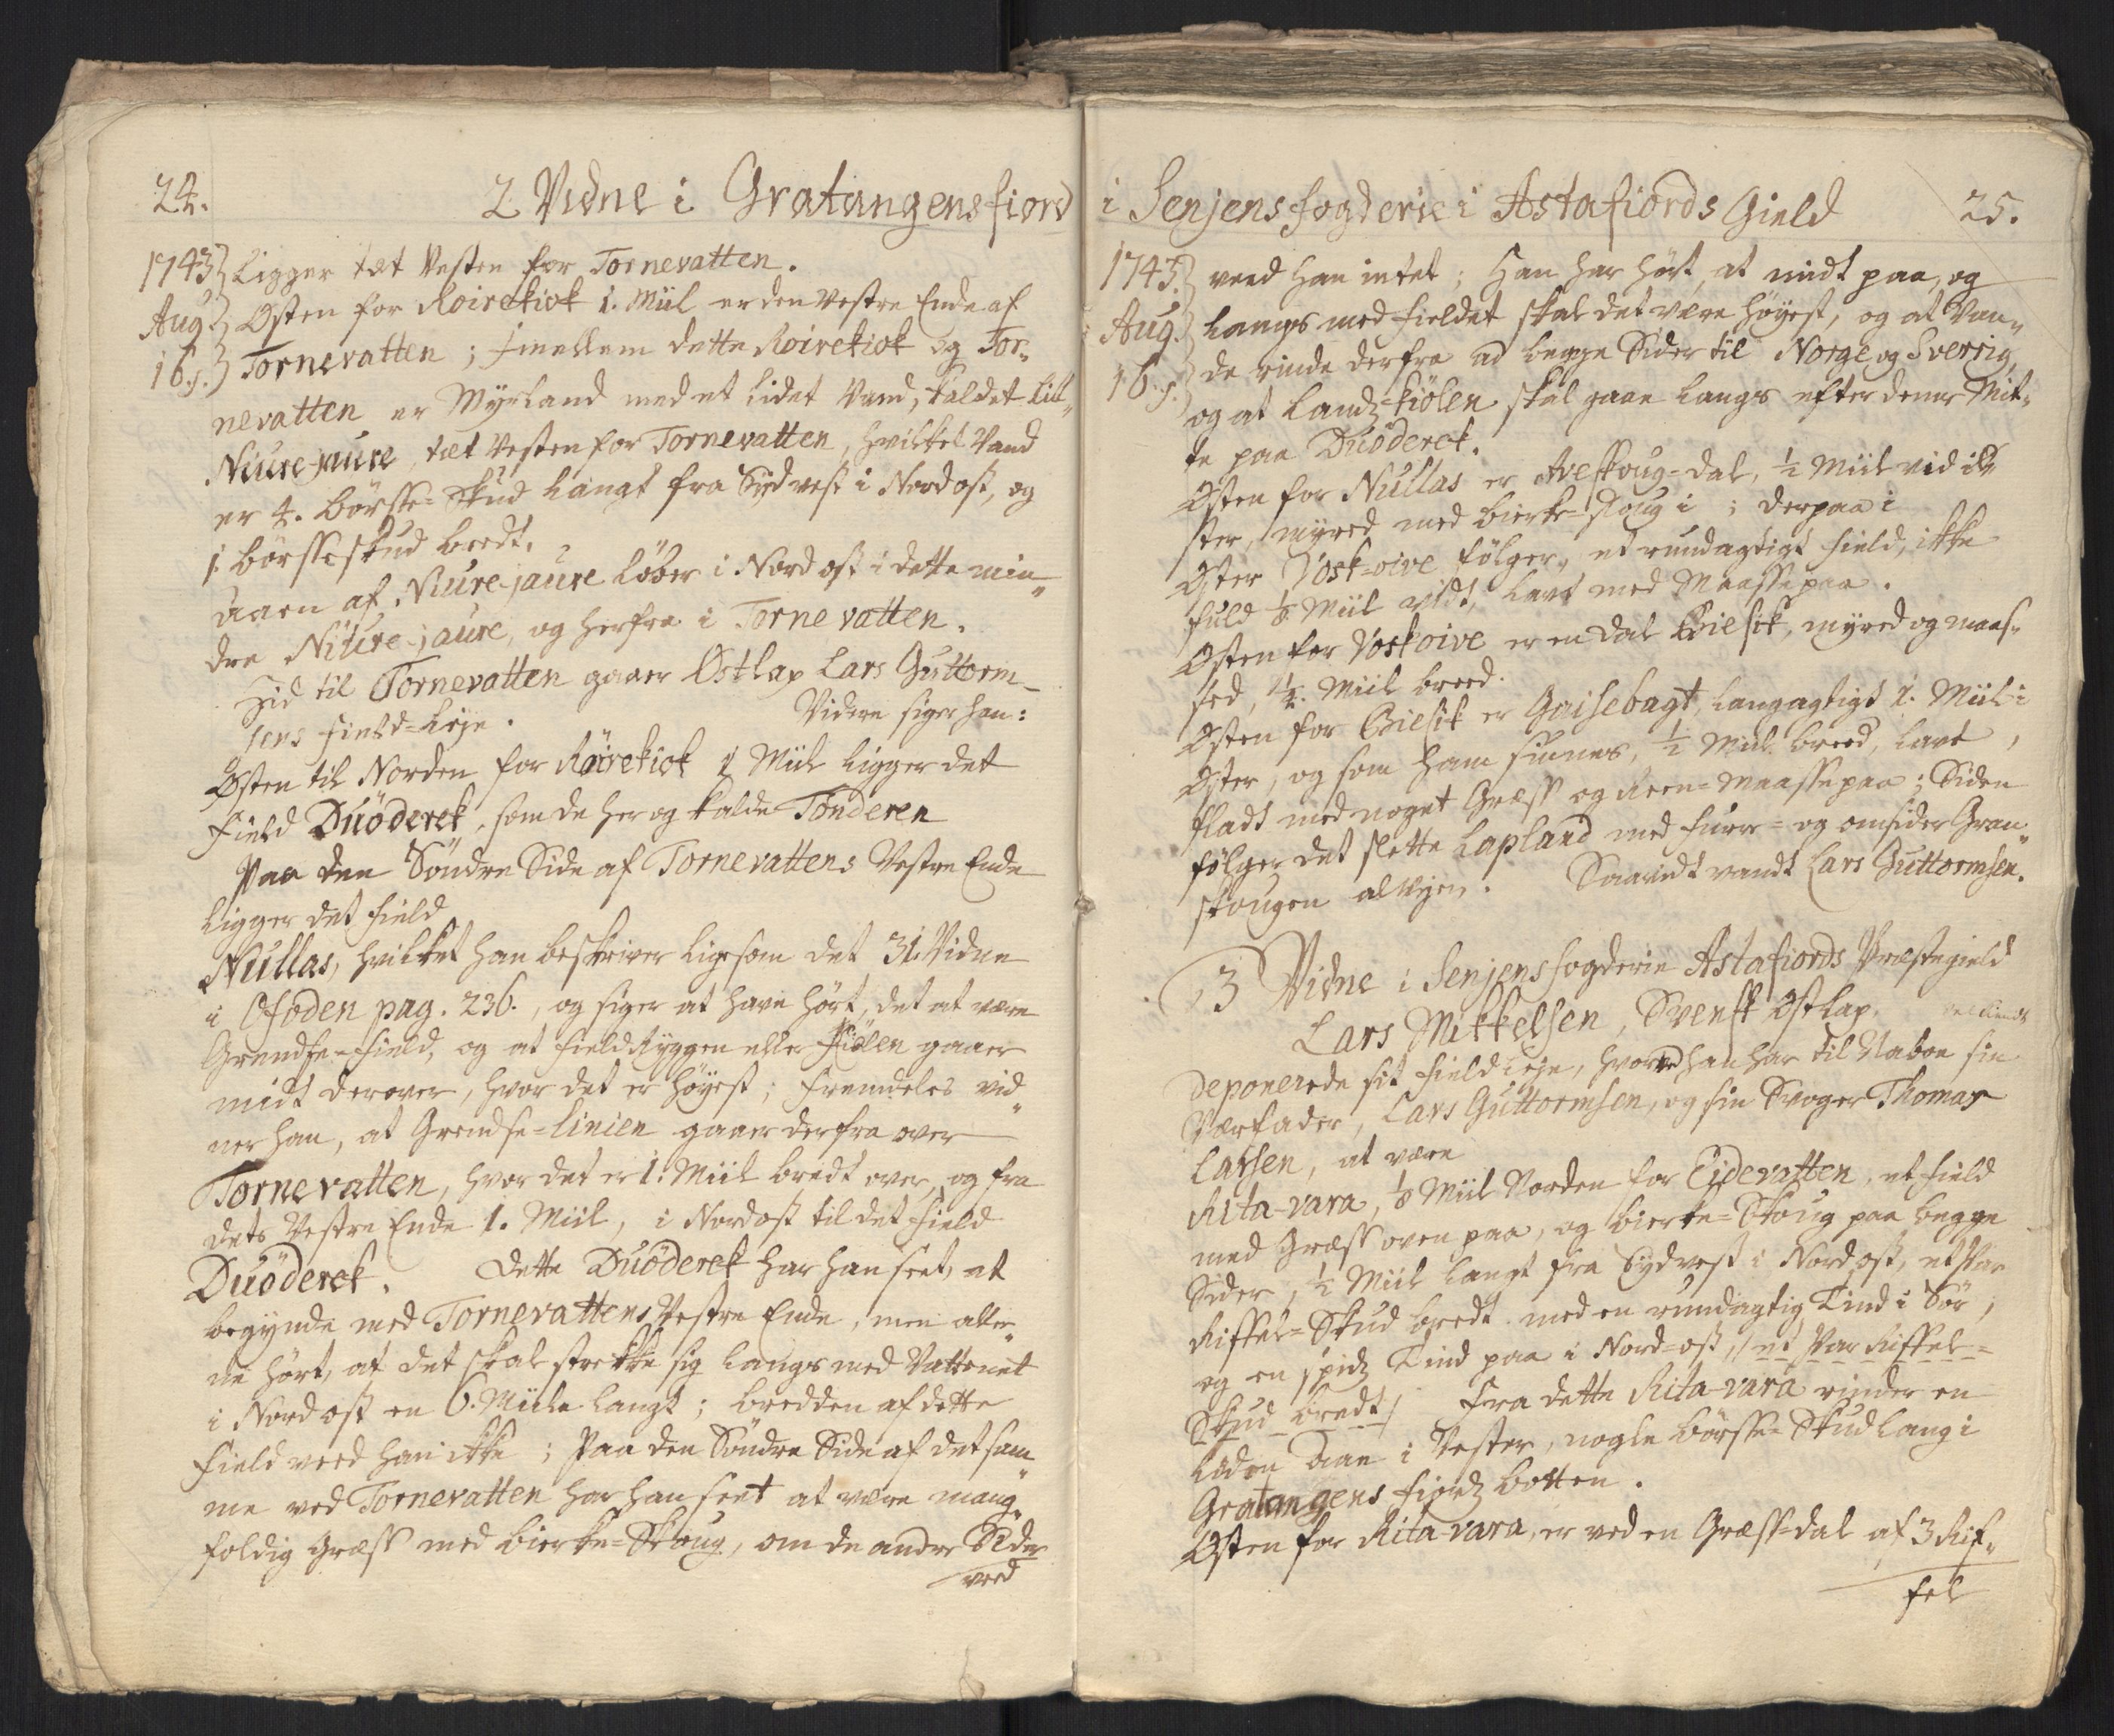 24.
2 Vidne i Gratangensfiord
1743 Ligger tæt Vesten for Tornevatten.
Aug. Østen for Roirekiok 1. Miil er den vestre Ende af
16.s. Tornevatten; imellem dette Roirekiok og Tor„
nevatten er Myrland med et lidet Vand, kaldet Litl„
Niure-jaure, tæt vesten for Tornevatten, hvilket Vand
er 4. børsse-skud langt fra Sydvest i Nordost, og
1. børsseskud bredt.
Aaen af Niure-jaure løber i Nordost i dette min„
dre Niure-jaure, og herfra i Torne vatten.
Hid til Tornevatten gaaer Østlap Lars Guttorm-
sens Field-Leje. Videre siger han:
Østen til Norden for Roirekiok 1 Miil ligger det
Field Duöderek, som de her og kalde Tonderen
Paa den Søndre Side af Tornevattens Vestre Ende
ligger det field
Nullas, hvilket han beskriver ligesom det 31. Vidne
i Ofoden pag. 236., og siger at have hørt, det at være
Grendse-Field, og at Fieldryggen eller Kiölen gaaer
midt derover, hvor det er høyest; fremdeles vid„
ner han, at Grendse-Linien gaaer derfra over
Tornevatten, hvor det er 1. Miil bredt over, og fra
dets Vestre Ende 1. Miil, i Nordost til det Field
Duöderek. Dette Duöderek har han seet, at
begynde med Tornevattens Vestre Ende, men alle„
ne hørt, at det skal strekke sig langs med Vattenet
i Nordost en 6. Miile langt; bredden af dette
Field veed han ikke; Paa den Søndre Side af det sam„
me ved Tornevatten har han seet at være mang„
foldig Græss med bierke-Skoug, om de andre Sider
veed
i Senjens fogderie i Astafiords Gield
25.
1743. veed han intet; Han har hørt, at midt paa, og
Aug. langs med fieldet skal det være høyest, og at Van„
16.s. de rinde derfra ad begge Sider til Norge og Sverrig,
og at Landz-kiölen skal gaae langs efter denne Mit„
te paa Duöderek.
Østen for Nullas er Aveskoug-dal, ½ Miil vid i
ster, myred med bierke-skoug i; derpaa i
Øster Voskoive følger, et rundagtigt field, ikke
fuld ⅛ Miil vidt, lavt med Maasse paa.
Østen for Voskoive er en dal Biesik, myred og maas„
sed, 1½. Miil breed.
Østen for Biesik er Gaisebagt, langagtigt 1. Miil i
Øster, og som ham sinnes, ½ Miil breed, lavt,
fladt med noget Græss og Reen-maasse paa; Siden
følger det slette Lapland med furre- og omsider Gran„
skougen alvejen. Saavidt vandt Lars Guttormsen.
3 Vidne i Senjens fogderie Astafiords Præstegield
Lars Mikkelsen, Svensk Østlap,
Deponerede sit Fieldleje, hvorved han har til Naboe sin
Værfader, Lars Guttormsen, og sin Svoger Thomas
Larsen, at være
Rita-vara, ⅛ Miil Norden for Eidevatten, et field
med Græss oven paa, og bierke-Skoug paa begge
Sider, ½ Miil langt fra Sydvest i Nordost, et par
Riffel-Skud bredt med en rundagtig Tind i Sør,
og en spidz Tind paa i Nord-ost, / et par Riffel-
Skud bredt / Fra dette Rita-vara rinder en
liden Aae i Vester, nogle børsse-Skud lang i
Gratangens Fiordz botten.
Østen for Rita-vara, er ved en Græss-dal af 3 Rif„
fel